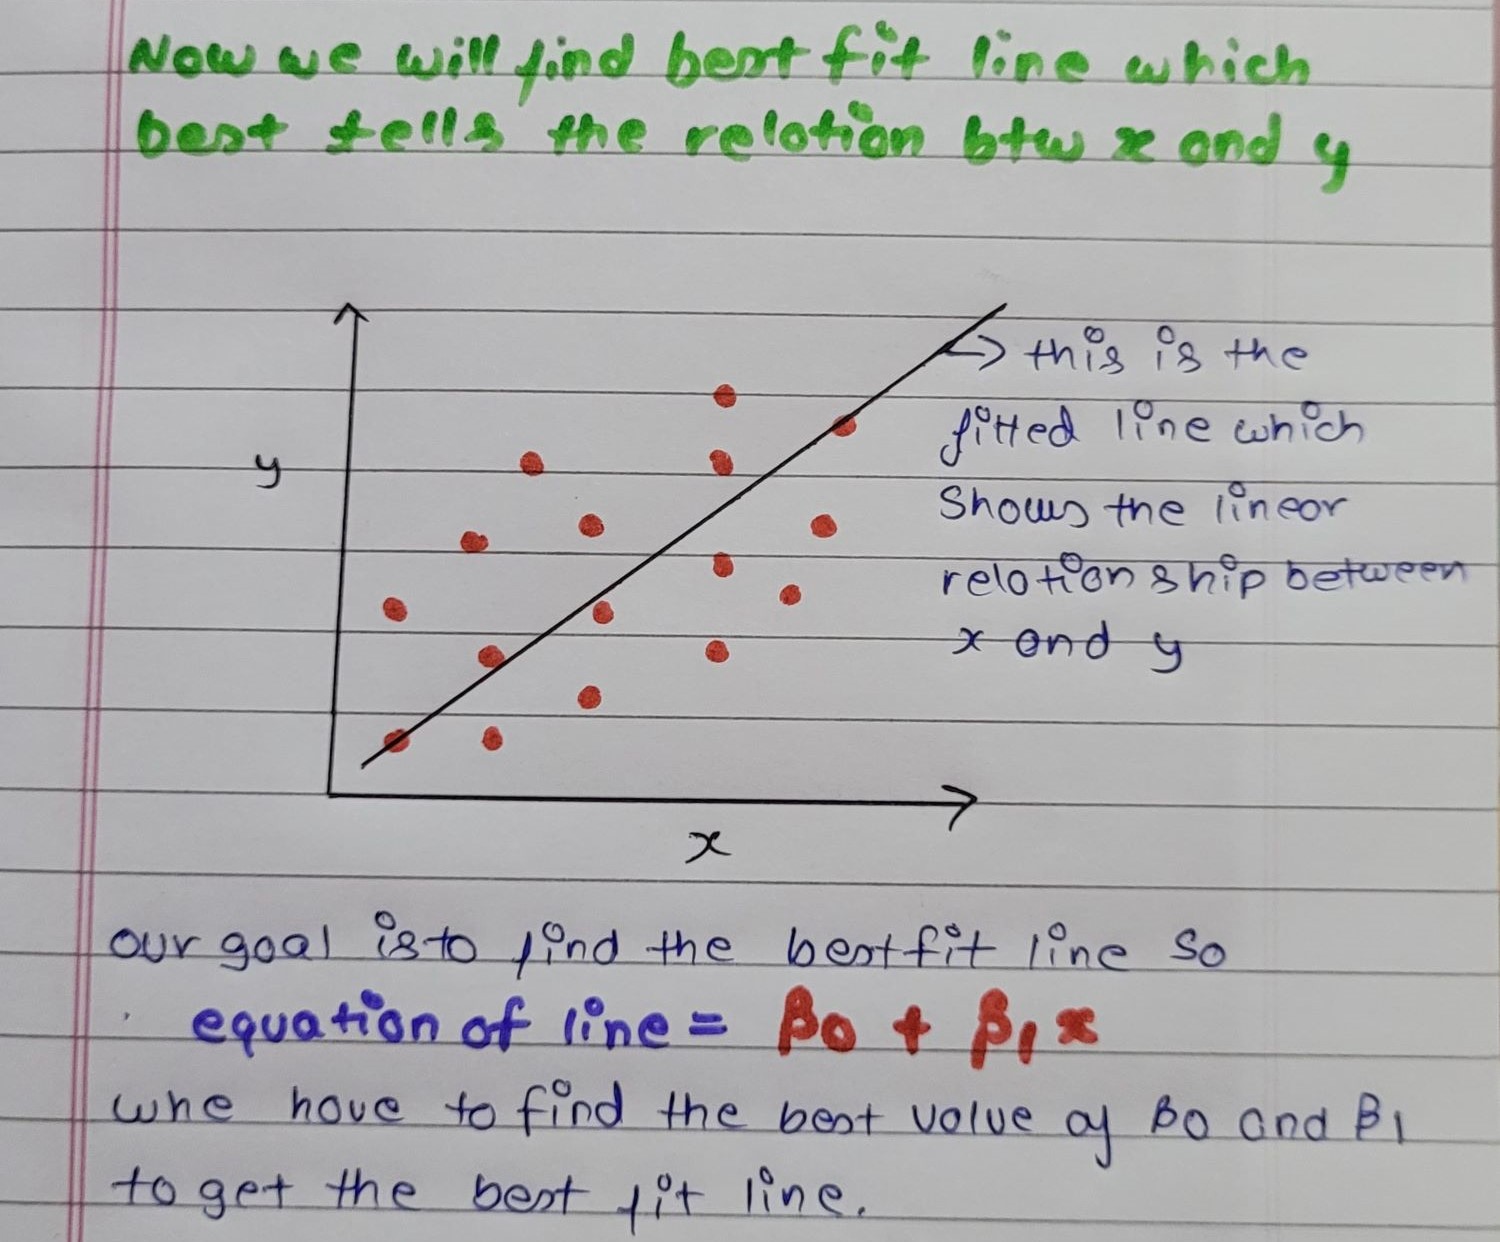 Now we will find best fit line which
best tells the relation btw x and y
this is the
fitted line which
y
shows the linear
relationship between
x and y
x
our goal is to find the best fit line so
equation of line = β0 + β1x
whe have to find the best value of β0 and β1
to get the best fit line.